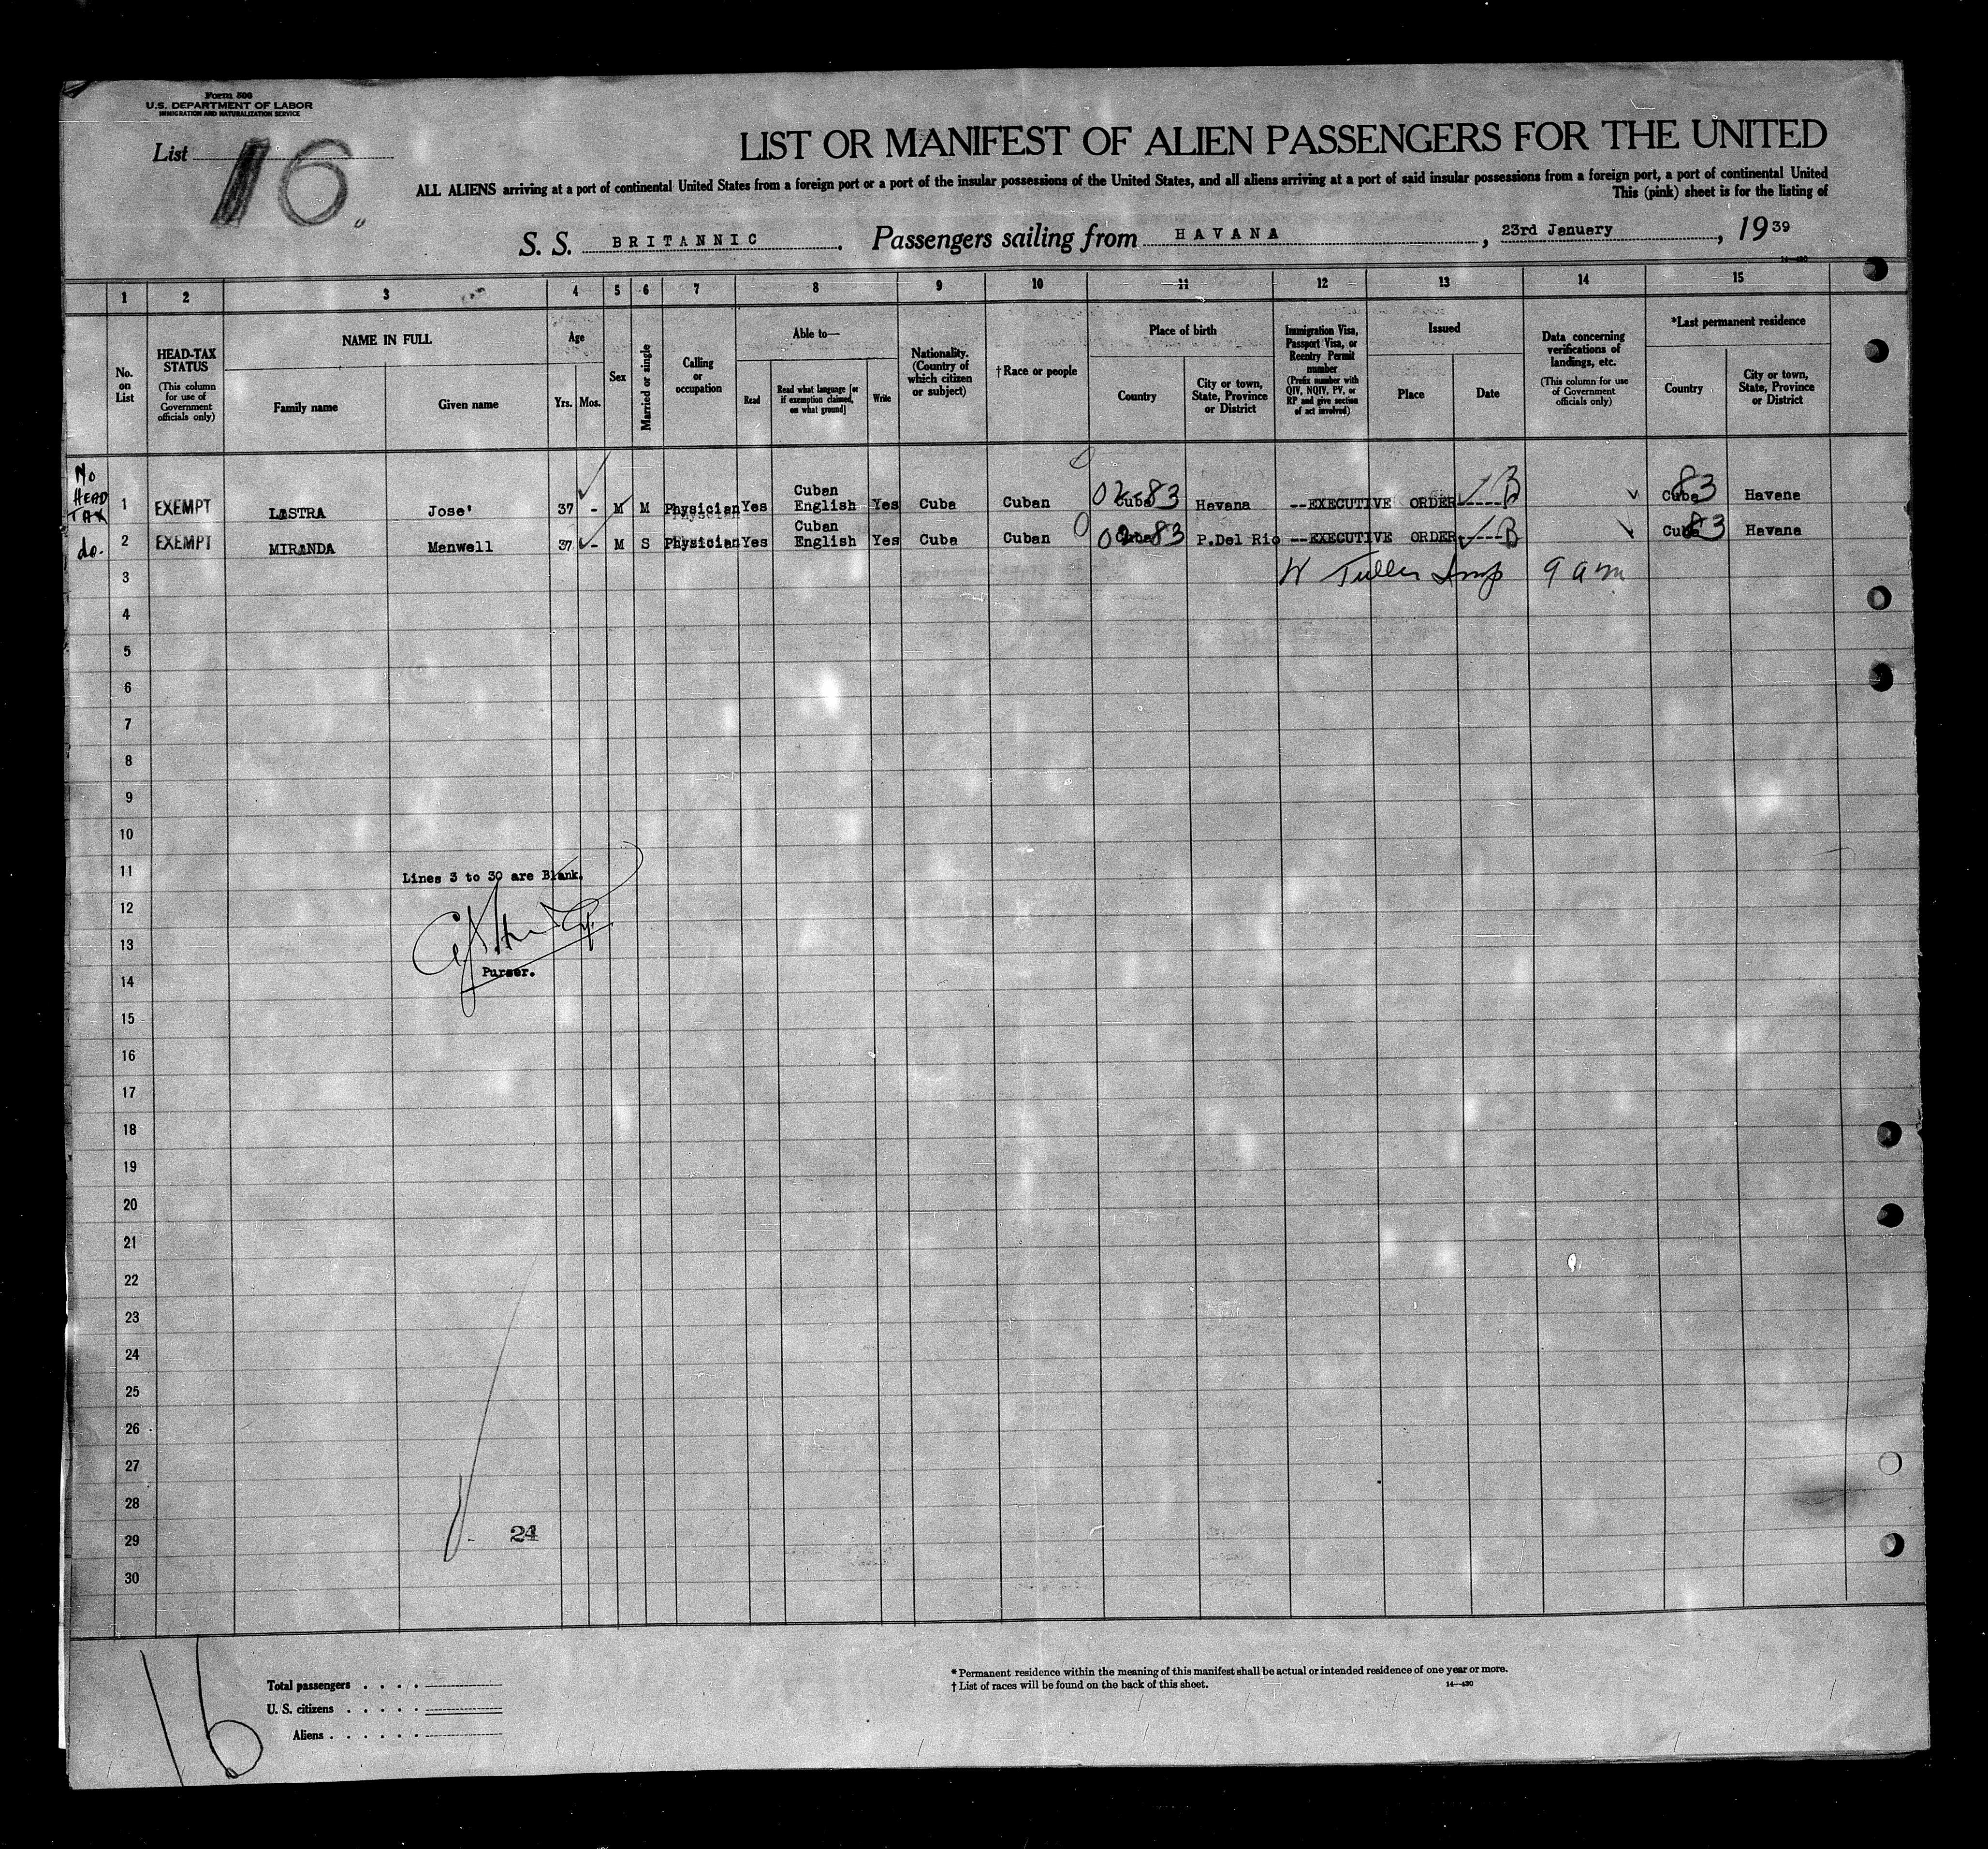 Form 500
U.S. DEPARTMENT OF LABOR
IMMIGRATION AND NATURALIZATION SERVICE
List 16
LIST OR MANIFEST OF ALIEN PASSENGERS FOR THE UNITED
ALL ALIENS arriving at a port of continental United States from a foreign port or a port of the insular possessions of the United States, and all aliens arriving at a port of said insular possessions from a foreign port, a port of continental United
This (pink) sheet is for the listing of
S. S. BRITANNIC . Passengers sailing from HAVANA , 23rd January , 19 39
14—430
1 2 3 4 5 6 7 8 9 10 11 12 13 14 15
No. on List
HEAD-TAX STATUS (This column for use of Government officials only)
NAME IN FULL
Family name
Given name
Age
Yrs. Mos.
Sex
Married or single
Calling or occupation
Able to—
Read
Read what language [or if exemption claimed, on what ground]
Write
Nationality. (Country of which citizen or subject)
† Race or people
Place of birth
Country
City or town, State, Province or District
Immigration Visa, Passport Visa, or Reentry Permit number (Prefix number with QIV, NQIV, PV, or RP and give section of act involved)
Issued
Place
Date
Data concerning verifications of landings, etc. (This column for use of Government officials only)
*Last permanent residence
Country
City or town, State, Province or District
No HEAD TAX 1 EXEMPT LASTRA Jose' 37 - M M Physician Yes Cuban English Yes Cuba Cuban Cuba 83 Havana --EXECUTIVE ORDER----- B Cuba 83 Havana
do. 2 EXEMPT MIRANDA Manwell 37 - M S Physician Yes Cuban English Yes Cuba Cuban Cuba 83 P.Del Rio --EXECUTIVE ORDER----- B Cuba 83 Havana
3 W Tuller Insp 9 am
4
5
6
7
8
9
10
11 Lines 3 to 30 are Blank.
12
13
14 Purser.
15
16
17
18
19
20
21
22
23
24
25
26
27
28
29 24
30
16
Total passengers . . . .
U. S. citizens . . . . .
Aliens . . . . . .
* Permanent residence within the meaning of this manifest shall be actual or intended residence of one year or more.
† List of races will be found on the back of this sheet.
14—430